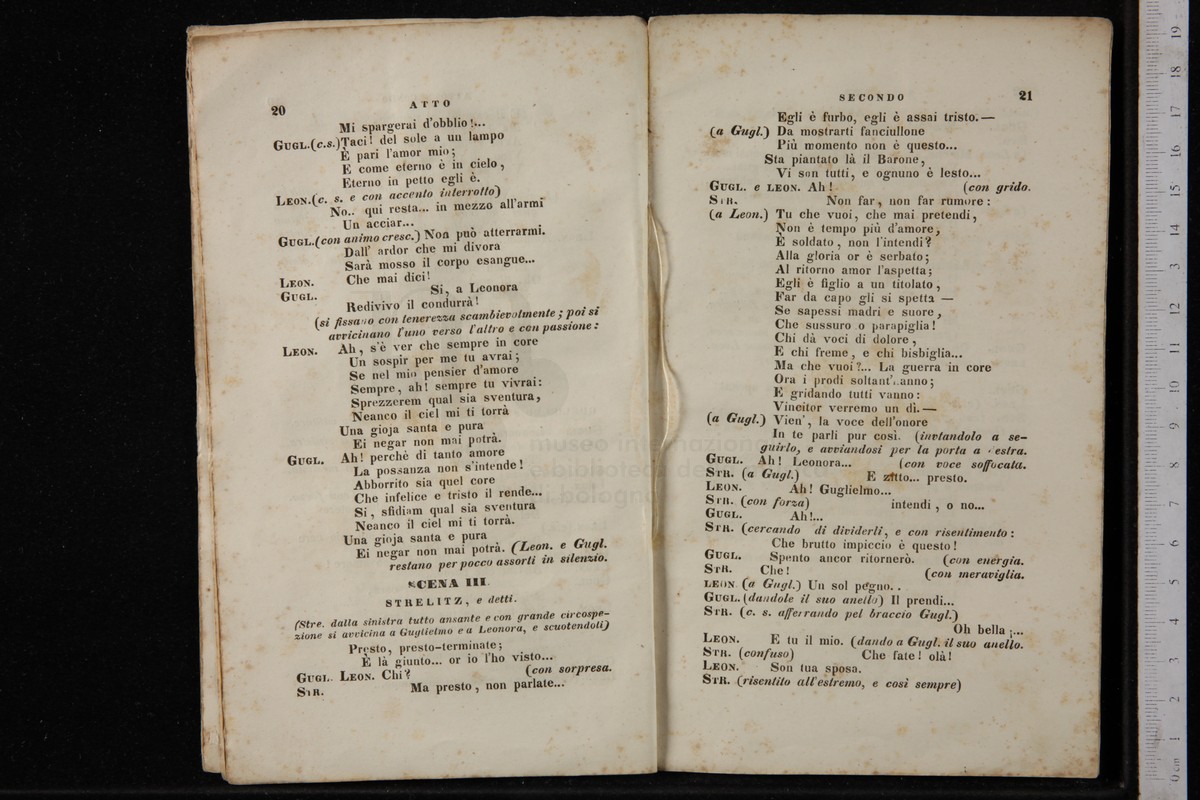 20
ATTO
Mi spargerai d'obblio!...
GUGL.(c.s.)Taci! del sole a un lampo
È pari l'amor mio;
E come eterno è in cielo,
Eterno in petto egli è.
LEON.(c. s. e con accento interrotto)
No.. qui resta... in mezzo all'armi
Un acciar...
GUGL.(con animo cresc.) Non può atterrarmi.
Dall' ardor che mi divora
Sarà mosso il corpo esangue...
LEON. Che mai dici!
GUGL. Si, a Leonora
Redivivo il condurrà!
(si fissano con tenerezza scambievolmente; poi si
avvicinano l'uno verso l'altro e con passione:
LEON. Ah, s'è ver che sempre in core
Un sospir per me tu avrai;
Se nel mio pensier d'amore
Sempre, ah! sempre tu vivrai:
Sprezzerem qual sia sventura,
Neanco il ciel mi ti torrà
Una gioja santa e pura
Ei negar non mai potrà.
GUGL. Ah! perchè di tanto amore
La possanza non s'intende!
Abborrito sia quel core
Che infelice e tristo il rende...
Si, sfidiam qual sia sventura
Neanco il ciel mi ti torrà.
Una gioja santa e pura
Ei negar non mai potrà. (Leon. e Gugl.
restano per poco assorti in silenzio.
SCENA III.
STRELITZ, e detti.
(Stre. dalla sinistra tutto ansante e con grande circospe-
zione si avvicina a Guglielmo e a Leonora, e scuotendoli)
Presto, presto-terminate;
È là giunto... or io l'ho visto...
GUGL. LEON. Chi? (con sorpresa.
STR. Ma presto, non parlate...
SECONDO
21
Egli è furbo, egli è assai tristo.—
(a Gugl.) Da mostrarti fanciullone
Più momento non è questo...
Sta piantato là il Barone,
Vi son tutti, e ognuno è lesto...
GUGL. e LEON. Ah! (con grido.
STR. Non far, non far rumore:
(a Leon.) Tu che vuoi, che mai pretendi,
Non è tempo più d'amore,
È soldato, non l'intendi?
Alla gloria or è serbato;
Al ritorno amor l'aspetta;
Egli è figlio a un titolato,
Far da capo gli si spetta —
Se sapessi madri e suore,
Che sussuro o parapiglia!
Chi dà voci di dolore,
E chi freme, e chi bisbiglia...
Ma che vuoi?... La guerra in core
Ora i prodi soltant'hanno;
E gridando tutti vanno:
Vincitor verremo un dì.—
(a Gugl.) Vien', la voce dell'onore
In te parli pur così. (invtandolo a se-
guirlo, e avviandosi per la porta a destra.
GUGL. Ah! Leonora... (con voce soffocata.
STR. (a Gugl.) E zitto... presto.
LEON. Ah! Guglielmo...
STR. (con forza) intendi, o no...
GUGL. Ah!...
STR. (cercando di dividerli, e con risentimento:
Che brutto impiccio è questo!
GUGL. Spento ancor ritornerò. (con energia.
STR. Che! (con meraviglia.
LEON. (a Gugl.) Un sol pegno..
GUGL. (dandole il suo anello) Il prendi...
STR. (c. s. afferrando pel braccio Gugl.)
Oh bella!...
LEON. E tu il mio. (dando a Gugl. il suo anello.
STR. (confuso) Che fate! olà!
LEON. Son tua sposa.
STR. (risentito all'estremo, e così sempre)